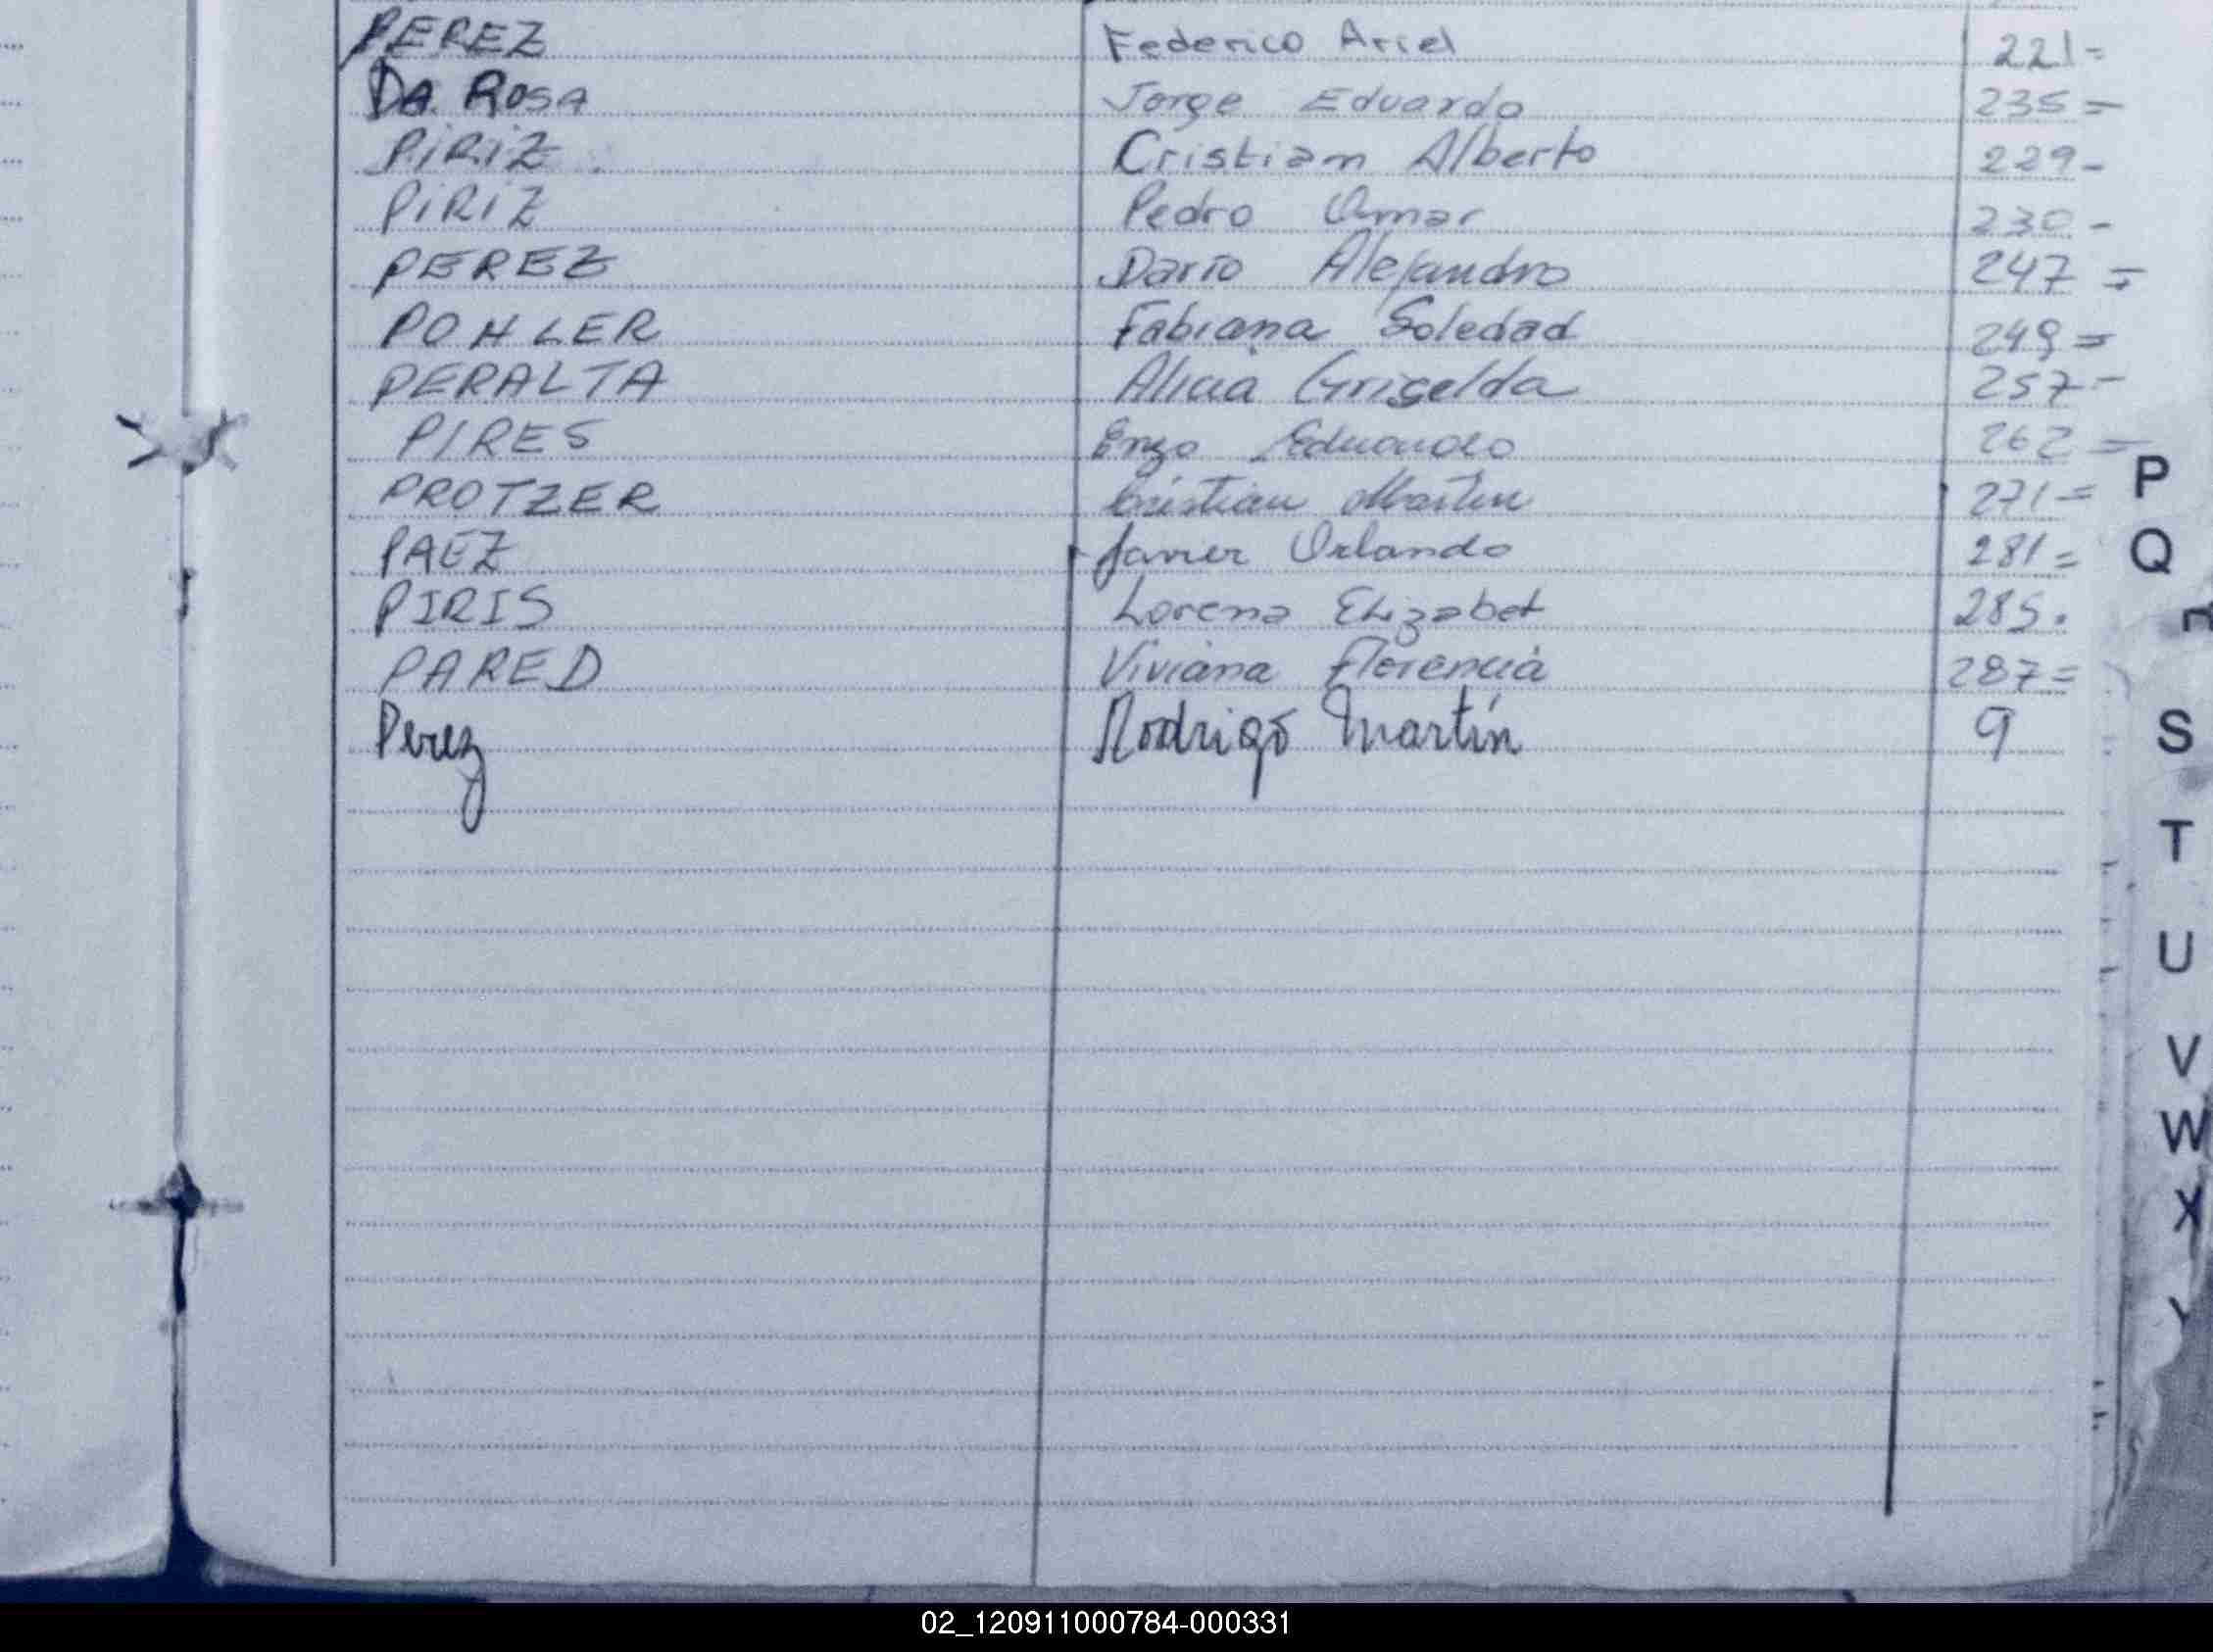 PEREZ Federico Ariel 221=
DA. ROSA Jorge Eduardo 235=
PiRiZ Cristiam Alberto 229-
PiRiZ Pedro Omar 230-
PEREZ Dario Alejandro 247=
POHLER Fabiana Soledad 249=
PERALTA Alicia Griselda 257-
PIRES Enzo Eduardo 262=
PROTZER Cristian Martin 271=
PAEZ Javier Orlando 281=
PIRIS Lorena Elizabet 285.
PARED Viviana Florencia 287=
Perez Rodrigo Martín 9
P
Q
S
T
U
V
W
X
Y
02_120911000784-000331